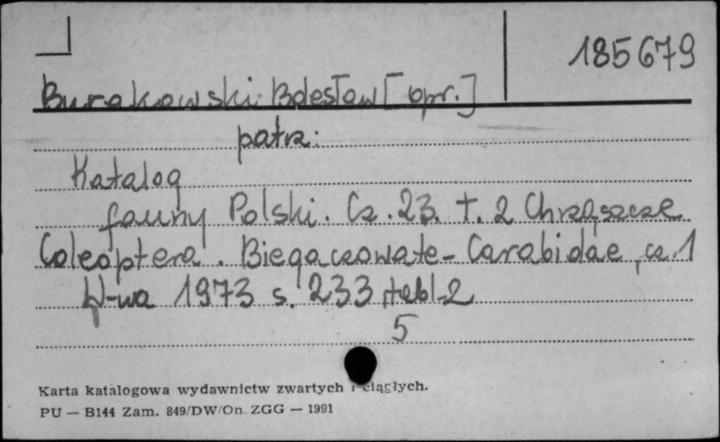 185679
Burakowski Bolesław [opr.]
patrz:
Katalog
fauny Polski. Cz. 23. t. 2 Chrząszcze
Coleoptera. Biegaczowate - Carabidae, cz. 1
W-wa 1973 s. 233, tabl. 2
5
Karta katalogowa wydawnictw zwartych i ciągłych.
PU — B144 Zam. 849/DW/On. ZGG — 1991